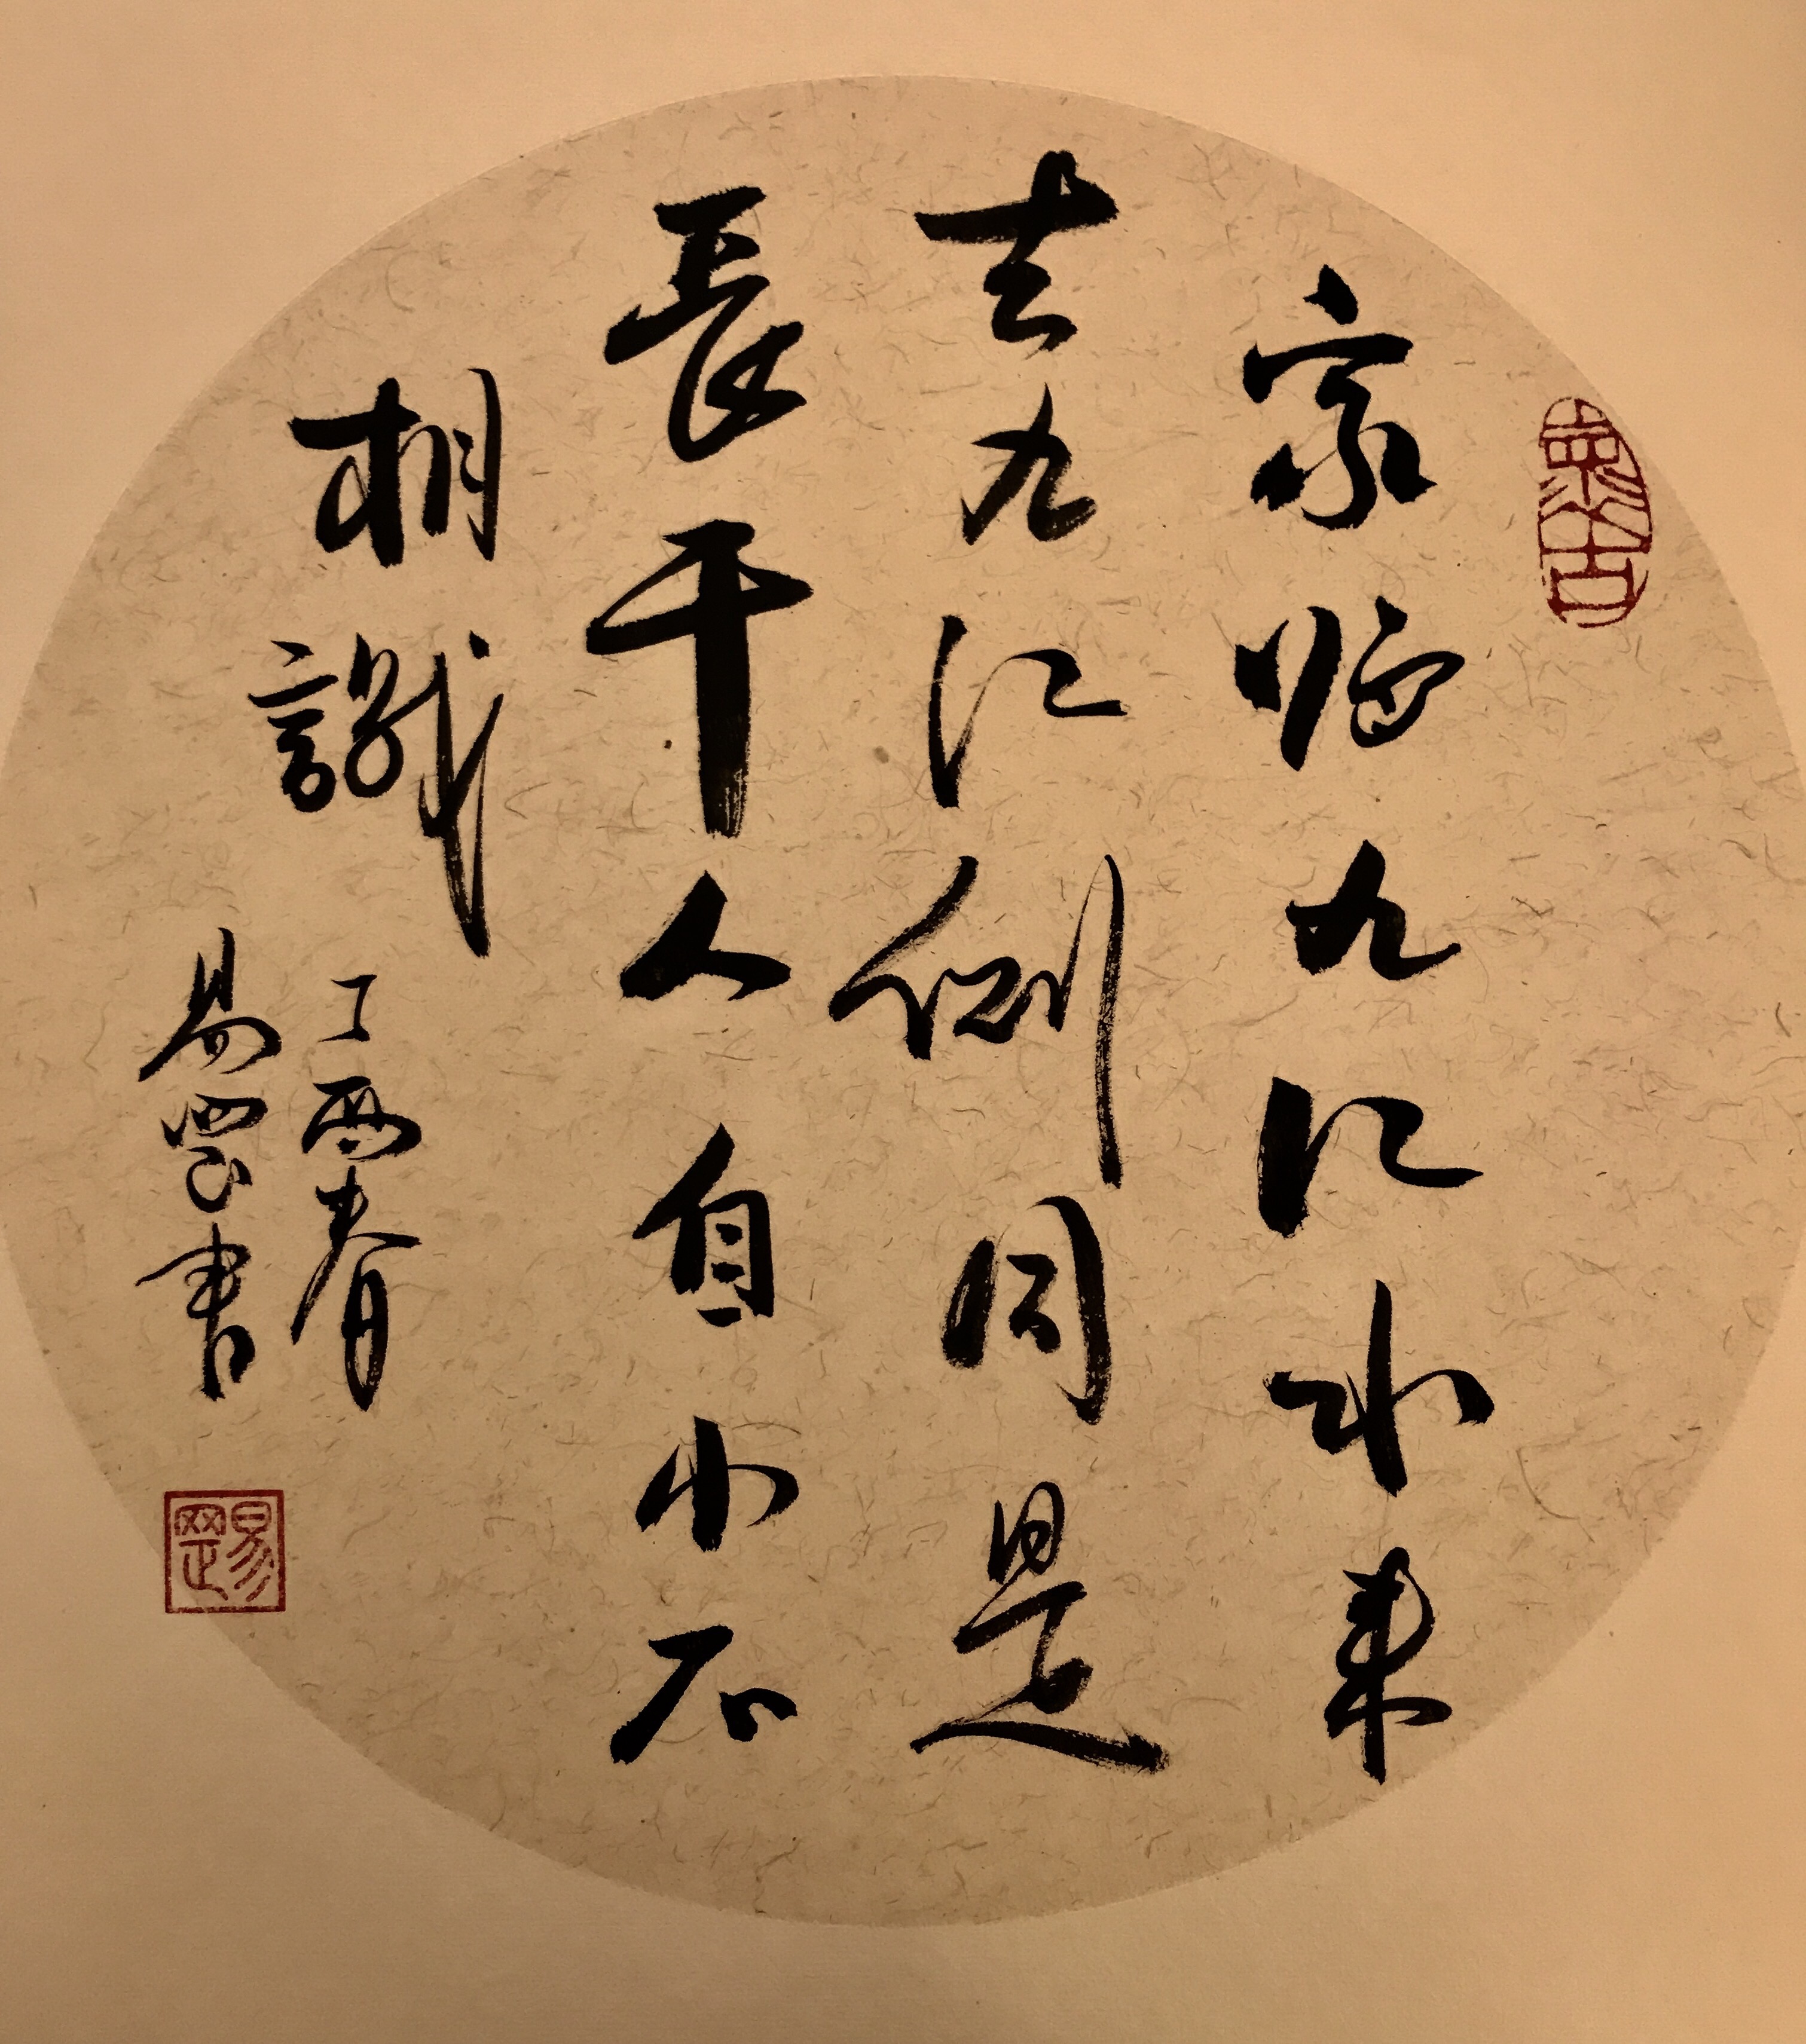 家臨九江水來
去九江側同是
長干人自小不
相識
丁酉春
易罡書
易罡